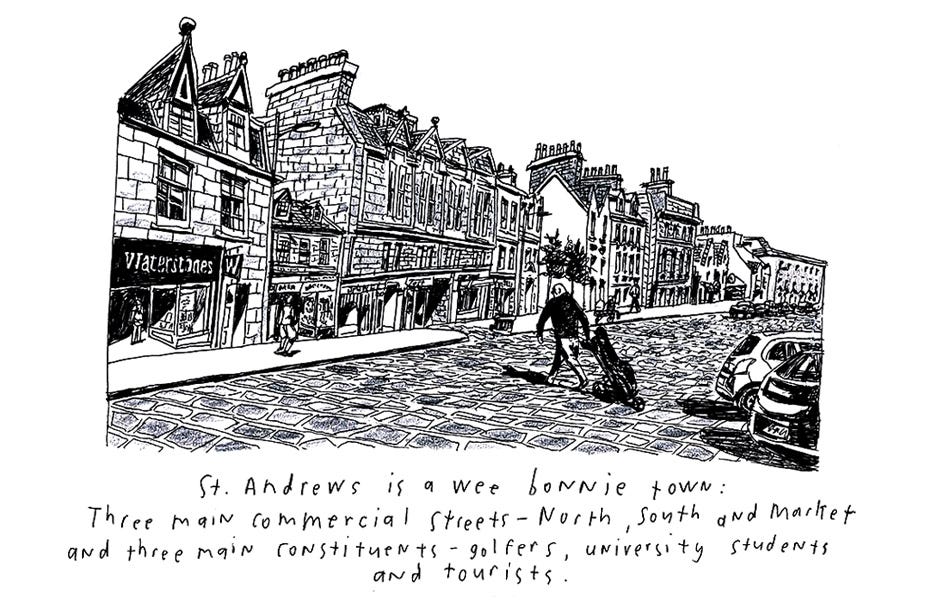 Waterstones W
St. Andrews is a wee bonnie town:
Three main commercial streets - North, South and Market
and three main constituents - golfers, university students
and tourists.